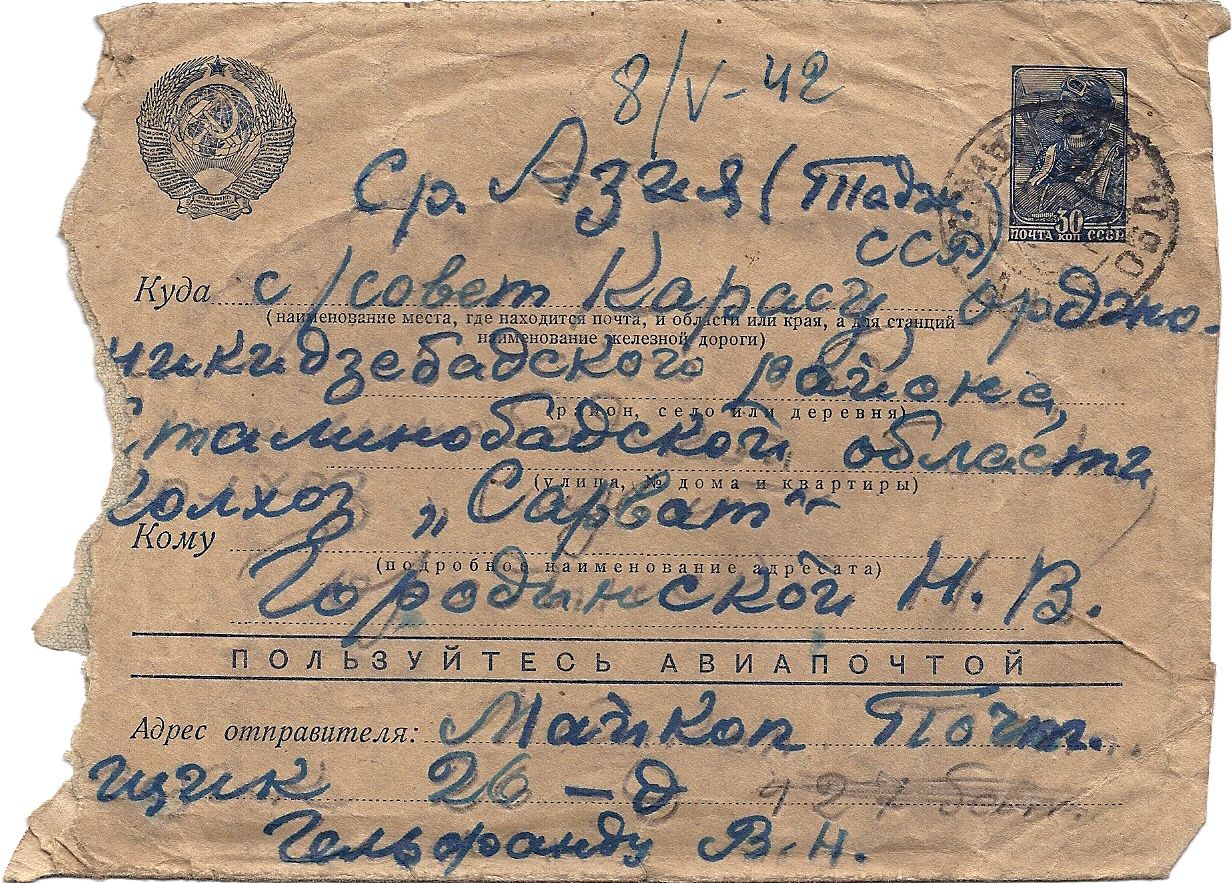 8/V-42
Ср. Азия (Тадж.
ССР)
30
ПОЧТА КОП СССР
Куда с/совет Карасу, орджо-
(наименование места, где находится почта, и области или края, а для станций
наименование железной дороги)
никидзебадского района,
(район, село или деревня)
Сталинобадской области
(улица, № дома и квартиры)
колхоз „Сарват"
Кому
(подробное наименование адресата)
Городинской Н. В.
ПОЛЬЗУЙТЕСЬ АВИАПОЧТОЙ
Адрес отправителя: Майкоп Почт.
ящик 26 - д 427
Гельфанду В. Н.